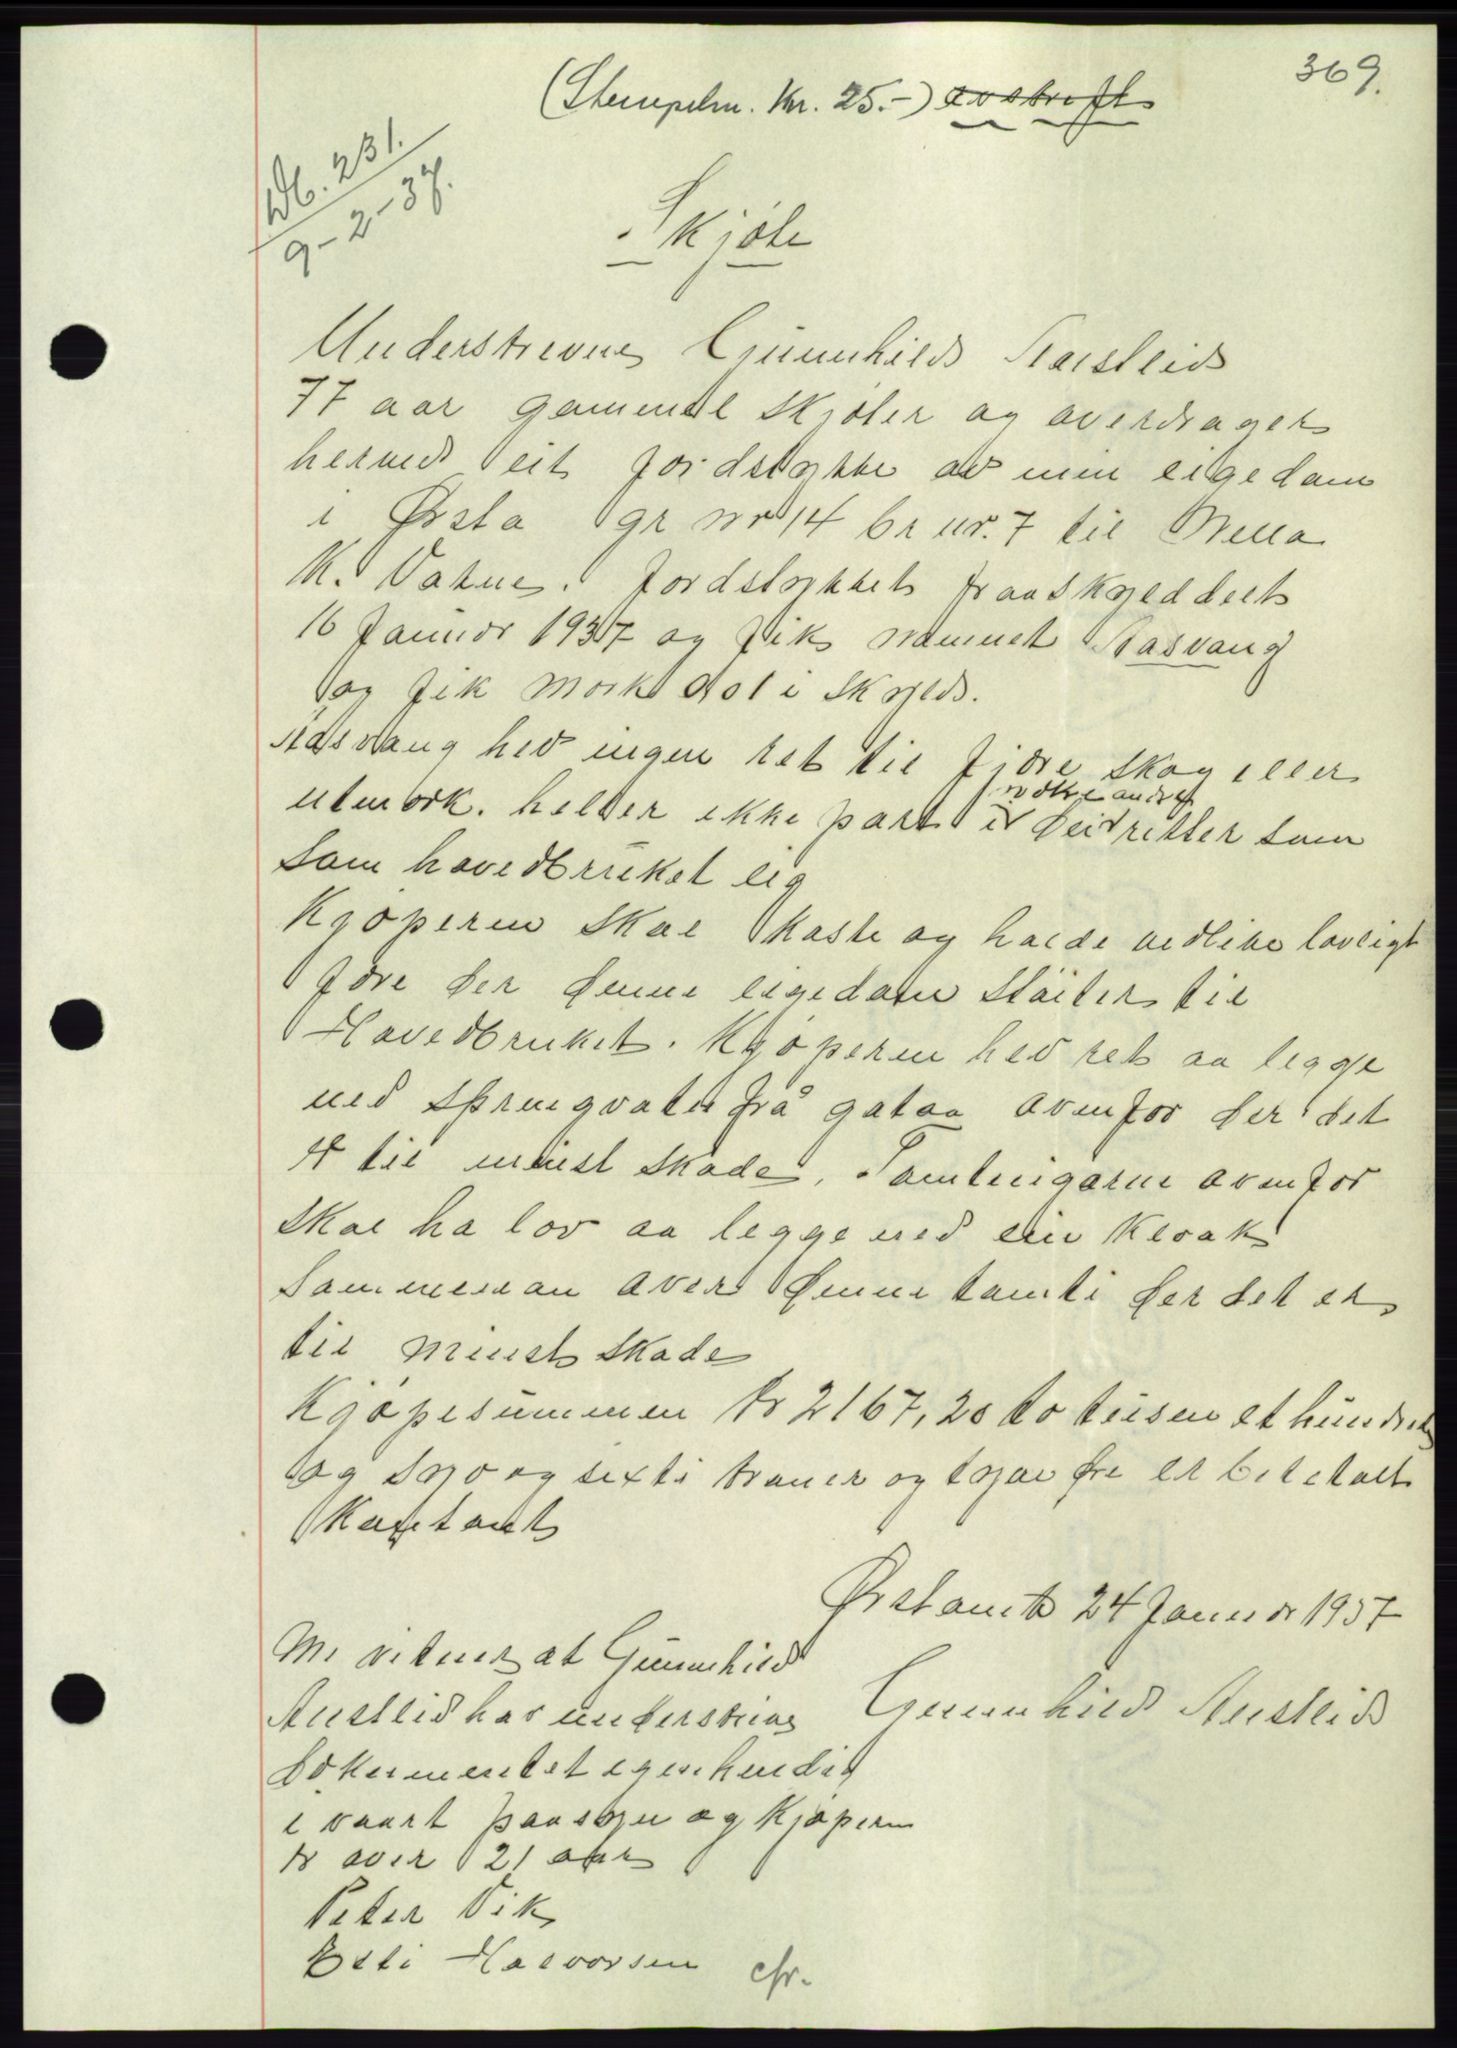 369.
(Stempelm. Kr. 25.-) avskrift
Db. 231.
9-2-37.
Skjøte
Underskrevne Gunnhild
77 aar gammel skjøter og overdrager
herved eit jordstykke av min eigedom
i Ørsta gr nr 14 br nr. 7 til
K. Vatne. Jordstykket fraaskyeddeet
16 Januar 1937 og fik namnet Aasvang
og fik mork 0.01 i skyld.
Aasvang hev ingen ret til fjøre skog eller
nokre andre
utmork. heller ikke part i retter som
som hovedbruket eig
Kjøperen skal koste og halde vedlike lovligt
gjøre der denne eigedom støiter til
Hovedbruket. Kjøperen hev ret aa legge
ned springvatn frå gataa ovenfor der det
er til minst skade. Tomteigarne ovenfor
skal ha lov aa legge ned ein kloak
sammenan over denne tomti der det er
til minst skade
Kjøpesummen kr 2167,20 to tusen et hundrede
og syv og sexti kroner og tyve øre er betalt
Kontant
Ørstavik 24 Januar 1937
Mi vitner at Gunnhild
Ausleid har underskrive
Gunnhild Ausleid
dokumentet egenhendig
i vaart paasyn og Kjøperen
er over 21 aar
Peter Vik
Halvorsen
cfr.